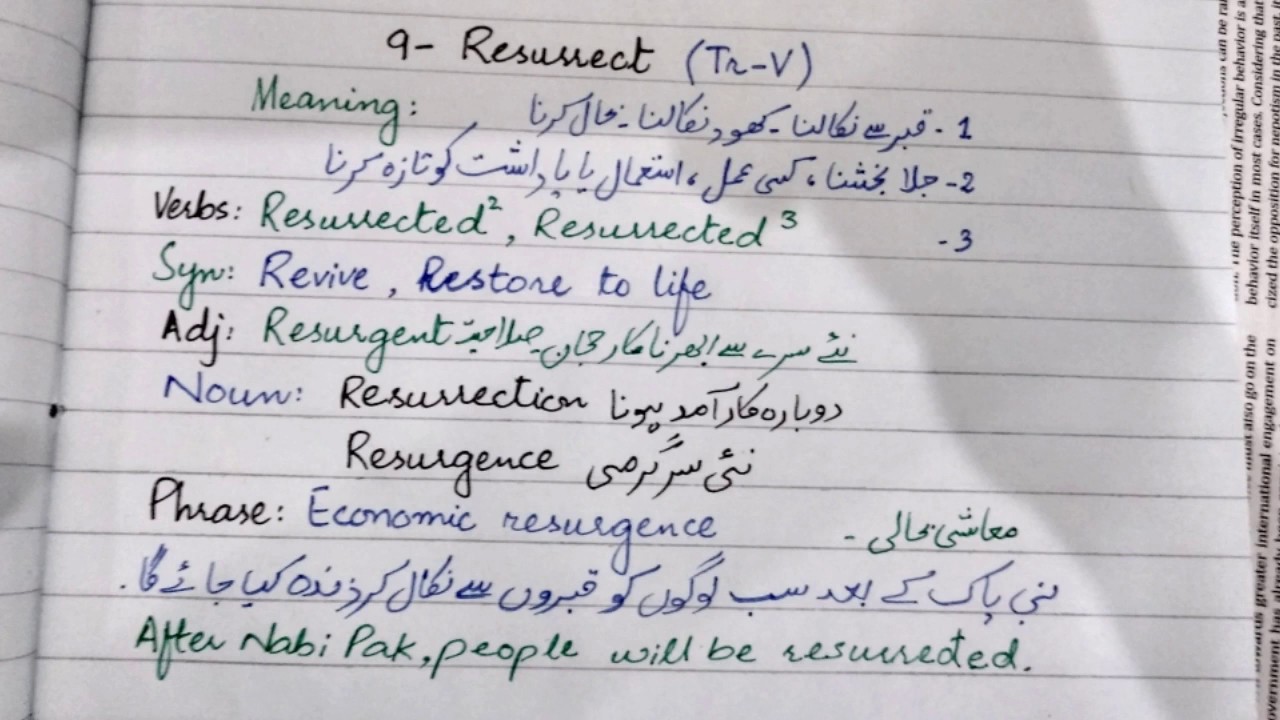 9- Resurrect (Tr-V)
Meaning: 1- قبر سے نکالنا - کھود نکالنا - بحال کرنا
2- جلا بخشنا، کسی عمل، استعمال یا یاداشت کو تازہ کرنا
Verbs: Resurrected², Resurrected³ -3
Syn: Revive, Restore to life
Adj: Resurgent نئے سرے سے ابھرنا کا رجحان، صلاحیت
Noun: Resurrection دوبارہ کارآمد ہونا
Resurgence نئی سرگرمی
Phrase: Economic resurgence معاشی بحالی -
نبی پاک کے بعد سب لوگوں کو قبروں سے نکال کر زندہ کیا جائے گا.
After Nabi Pak, people will be resurrected.
perception of irregular behavior is a
behavior itself in most cases. Considering that
cized the opposition for nepotism in the past, it
must also go on the
greater international engagement on